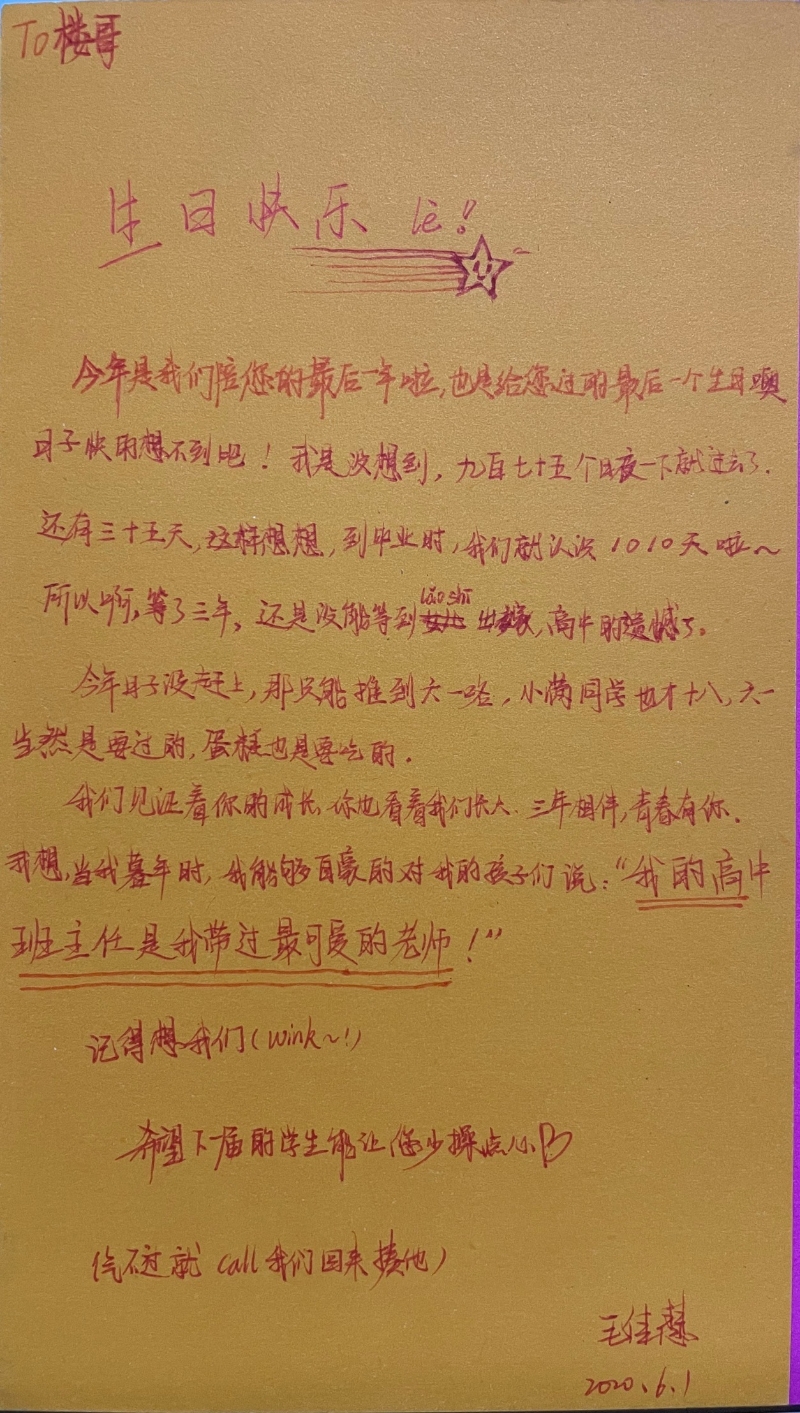 To 楼哥
生日快乐 lē!!
今年是我们陪您的最后一年啦,也是给您过的最后一个生日噢
日子快的想不到吧！我是没想到，九百七十五个日夜一下就过去了.
还有三十五天,这样想想，到毕业时,我们就认识1010天啦～
所以啊,等了三年，还是没能等到lǎo shī出嫁,高中的遗憾了。
今年日子没赶上,那只能推到六一咯，小满同学也才十八,六一
当然是要过的,蛋糕也是要吃的.
我们见证着你的成长,你也看着我们长大.三年相伴,青春有你.
我想,当我暮年时,我能够自豪的对我的孩子们说：“我的高中
班主任是我带过最可爱的老师！”
记得想我们(wink~!)
希望下届的学生能让您少操点心
(气不过就call我们回来揍他)
王佳慧
2020.6.1